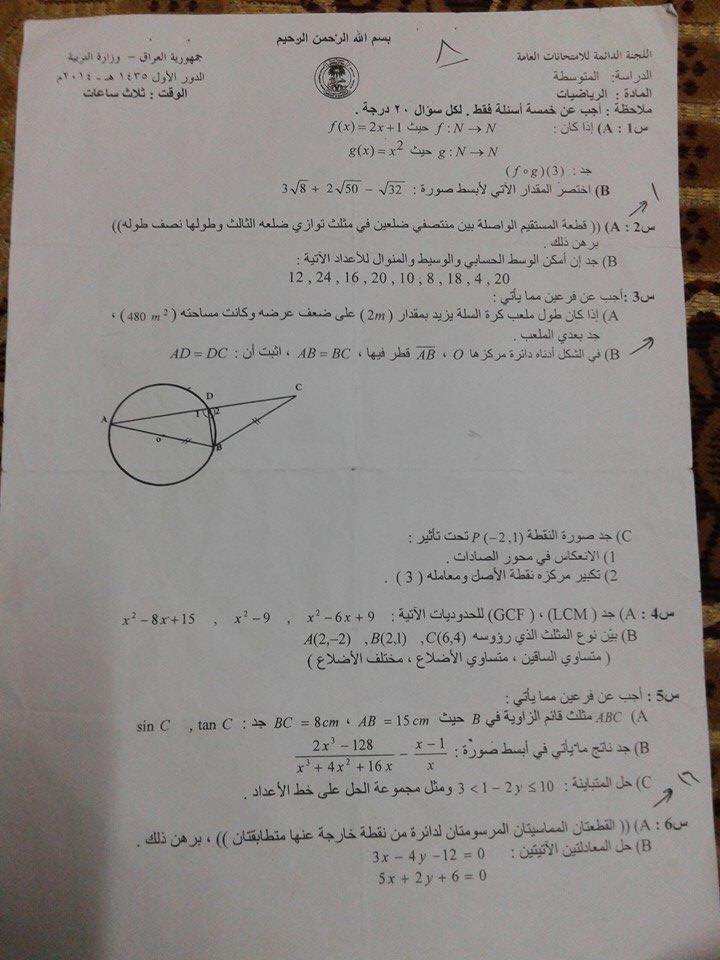 بسم الله الرحمن الرحيم
اللجنة الدائمة للامتحانات العامة
جمهورية العراق - وزارة التربية
٨
الدراسة: المتوسطة
الدور الأول ١٤٣٥هـ - ٢٠١٤م
المادة : الرياضيات
الوقت : ثلاث ساعات
ملاحظة : أجب عن خمسة أسئلة فقط . لكل سؤال ٢٠ درجة .
س1 : A) إذا كان : f : N → N حيث f(x) = 2x+1
g : N → N حيث g(x) = x²
جد : (f ∘ g)(3)
B) اختصر المقدار الآتي لأبسط صورة : 3√8 + 2√50 − √32
س2 : A) (( قطعة المستقيم الواصلة بين منتصفي ضلعين في مثلث توازي ضلعه الثالث وطولها نصف طوله))
برهن ذلك .
B) جد إن أمكن الوسط الحسابي والوسيط والمنوال للأعداد الآتية :
12 , 24 , 16 , 20 , 10 , 8 , 18 , 4 , 20
س3 : أجب عن فرعين مما يأتي :
A) إذا كان طول ملعب كرة السلة يزيد بمقدار (2m) على ضعف عرضه وكانت مساحته (480 m²) ،
جد بعدي الملعب .
B) في الشكل أدناه دائرة مركزها O ، AB قطر فيها ، AB = BC ، اثبت أن : AD = DC
D
C
A
1
2
o
B
C) جد صورة النقطة P(−2,1) تحت تأثير :
1) الانعكاس في محور الصادات .
2) تكبير مركزه نقطة الأصل ومعامله ( 3 ) .
س4 : A) جد (LCM) ، (GCF) للحدوديات الآتية : x² − 6x + 9 , x² − 9 , x² − 8x + 15
B) بيّن نوع المثلث الذي رؤوسه A(2,−2) , B(2,1) , C(6,4)
( متساوي الساقين ، متساوي الأضلاع ، مختلف الأضلاع )
س5 : أجب عن فرعين مما يأتي :
A) ABC مثلث قائم الزاوية في B حيث AB = 15 cm ، BC = 8cm جد : sin C , tan C
B) جد ناتج ما يأتي في أبسط صورة : (2x³ − 128)/(x³ + 4x² + 16x) − (x − 1)/x
C) حل المتباينة : 3 < 1 − 2y ≤ 10 ومثل مجموعة الحل على خط الأعداد .
س6 : A) (( القطعتان المماسيتان المرسومتان لدائرة من نقطة خارجة عنها متطابقتان )) ، برهن ذلك .
B) حل المعادلتين الآتيتين : 3x − 4y − 12 = 0
5x + 2y + 6 = 0